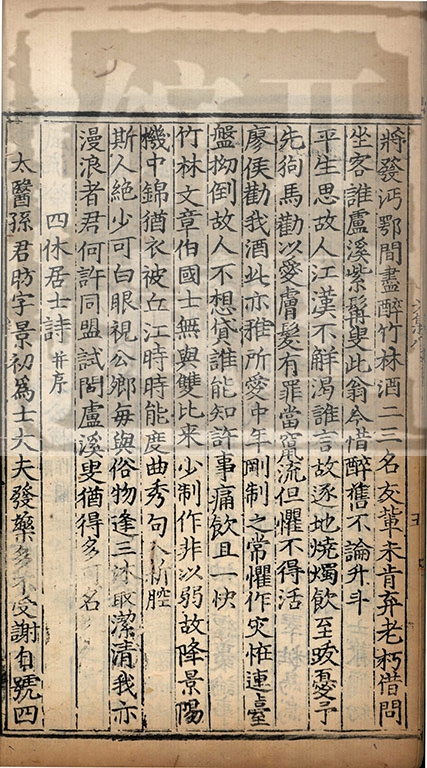 將發沔鄂間盡醉竹林酒二三名友輩未肯弃老朽借問
坐客誰盧溪紫髯叟此翁今惜醉舊不論升斗
平生思故人江漢不解渴誰言放逐地燒燭飲至跋憂予
先狗馬勸以愛膚髮有罪當竄流但懼不得活
廖侯勸我酒此亦雅所愛中年剛制之常懼作災怪連臺
盤拗倒故人不想貸誰能知許事痛飲且一快
竹林文章伯國士無與雙比來少制作非以弱故降景陽
機中錦猶衣被丘江時時能度曲秀句入新腔
斯人絶少可白眼視公卿每與俗物逢三沐取潔清我亦
漫浪者君何許同盟試問盧溪叟猶得多 名
四休居士詩并序
太醫孫君昉字景初爲士大夫發藥多不受謝自號四